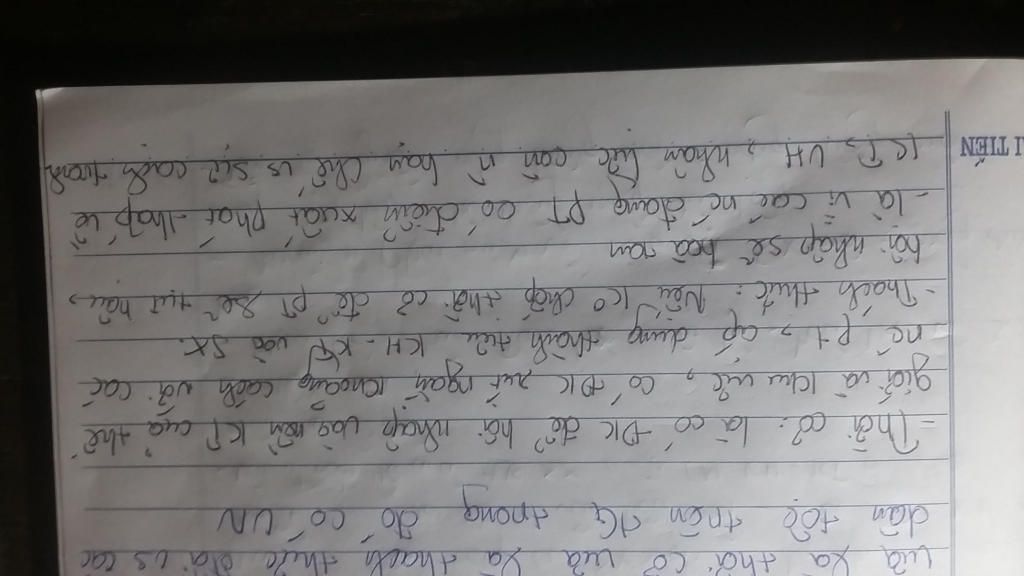 vừa là thời cơ vừa là thách thức đối vs các
dân tộc trên TG trong đó có VN
- Thời cơ: là có ĐK để hội nhập vào nền KT của thế
giới và khu vực, có ĐK rút ngắn khoảng cách với các
nc PT, áp dụng thành tựu KH - KT vào SX.
- Thách thức: Nếu ko chớp thời cơ để PT sẽ tụt hậu,
hội nhập sẽ hoà tan
- là vì các nc đang PT có điểm xuất phát thấp về
KT, VH, nhân lực còn n hạn chế vs sự cạnh tranh
I TIẾN